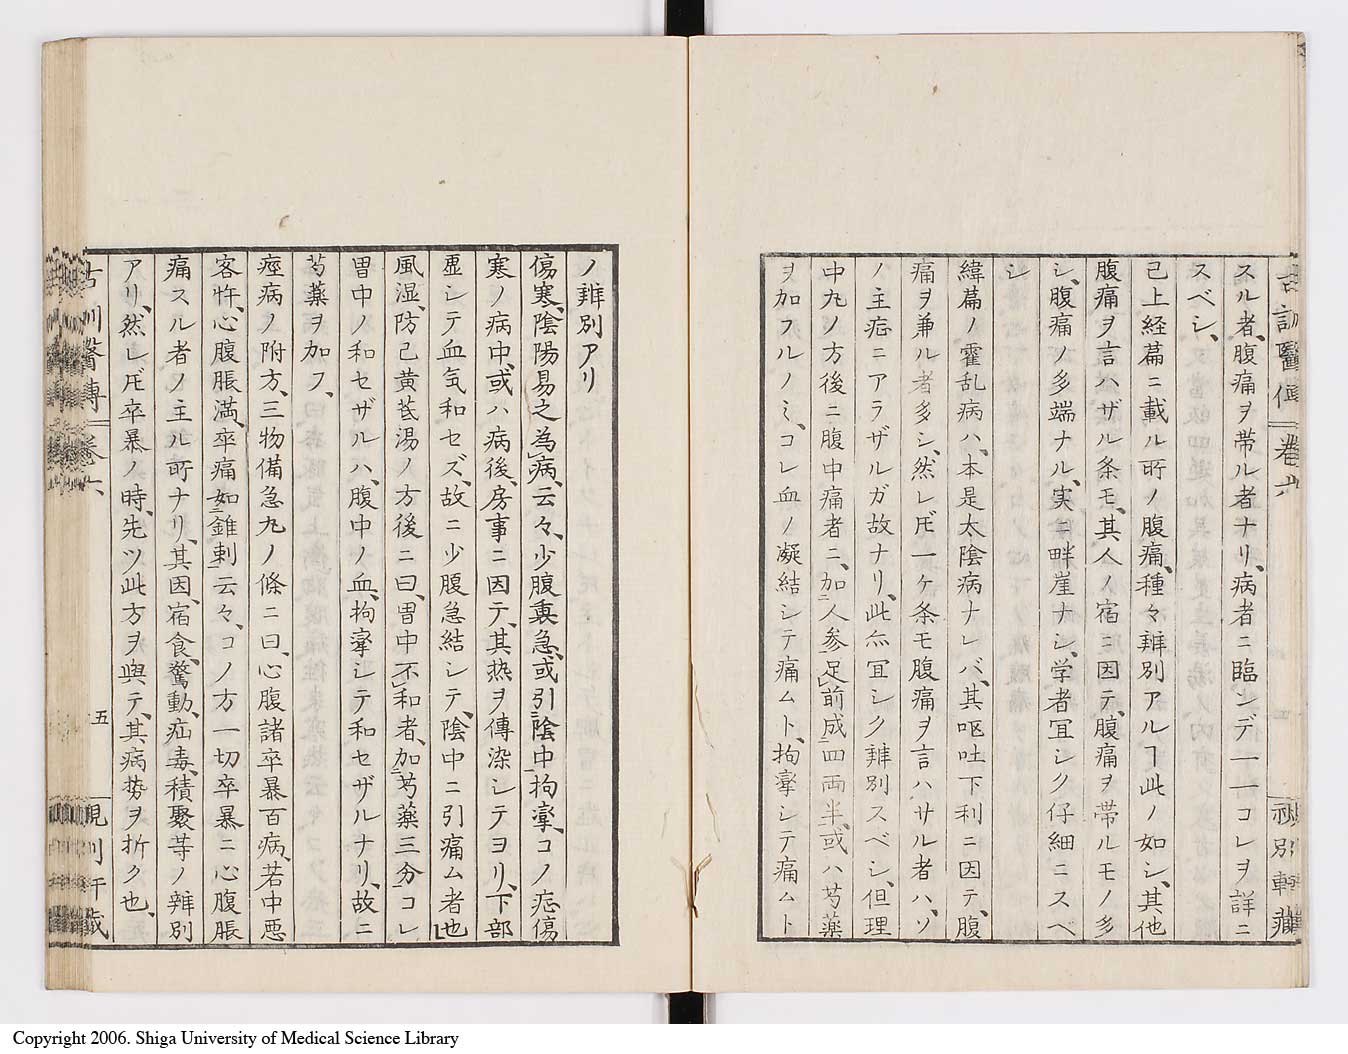 スル者、腹痛ヲ帯ル者ナリ、病者ニ臨ンデ一一コレヲ詳ニ
スベシ、
已上経篇ニ載ル所ノ腹痛、種々辨別アルヿ此ノ如シ、其他
腹痛ヲ言ハザル条モ、其人ノ宿ニ因テ、腹痛ヲ帯ルモノ多
シ、腹痛ノ多端ナル、実ニ畔崖ナシ、学者冝シク仔細ニスベ
シ
緯篇ノ霍乱病ハ、本是太陰病ナレバ、其嘔吐下利ニ因テ、腹
痛ヲ兼ル者多シ、然レ𪜈一ケ条モ腹痛ヲ言ハサル者ハ、ソ
ノ主症ニアラザルガ故ナリ、此亦冝シク辨別スベシ、但理
中丸ノ方後ニ腹中痛者ニ、加人参足前成四両半、或ハ芍薬
ヲ加フルノミ、コレ血ノ凝結シテ痛ムト、拘攣シテ痛ムト
古訓醫傳 巻六
祝別軒藏
ノ辨別アリ
傷寒、陰陽易之為病、云々、少腹裏急、或引陰中拘攣、コノ症傷
寒ノ病中、或ハ病後、房事ニ因テ、其熱ヲ傳染シテヨリ、下部
虚シテ血気和セズ、故ニ少腹急結シテ、陰中ニ引痛ム者也
風湿、防己黄芪湯ノ方後ニ曰、胃中不和者、加芍薬三分コレ
胃中ノ和セザルハ、腹中ノ血、拘攣シテ和セザルナリ、故ニ
芍薬ヲ加フ、
痙病ノ附方、三物備急丸ノ條ニ曰、心腹諸卒暴百病、若中悪
客忤、心腹脹満、卒痛如錐刺云々、コノ方一切卒暴ニ心腹脹
痛スル者ノ主ル所ナリ、其因、宿食、驚動、疝毒、積聚等ノ辨別
アリ、然レ𪜈卒暴ノ時、先ツ此方ヲ與テ、其病勢ヲ折ク也、
古訓醫傳 巻六
五
Copyright 2006. Shiga University of Medical Science Library